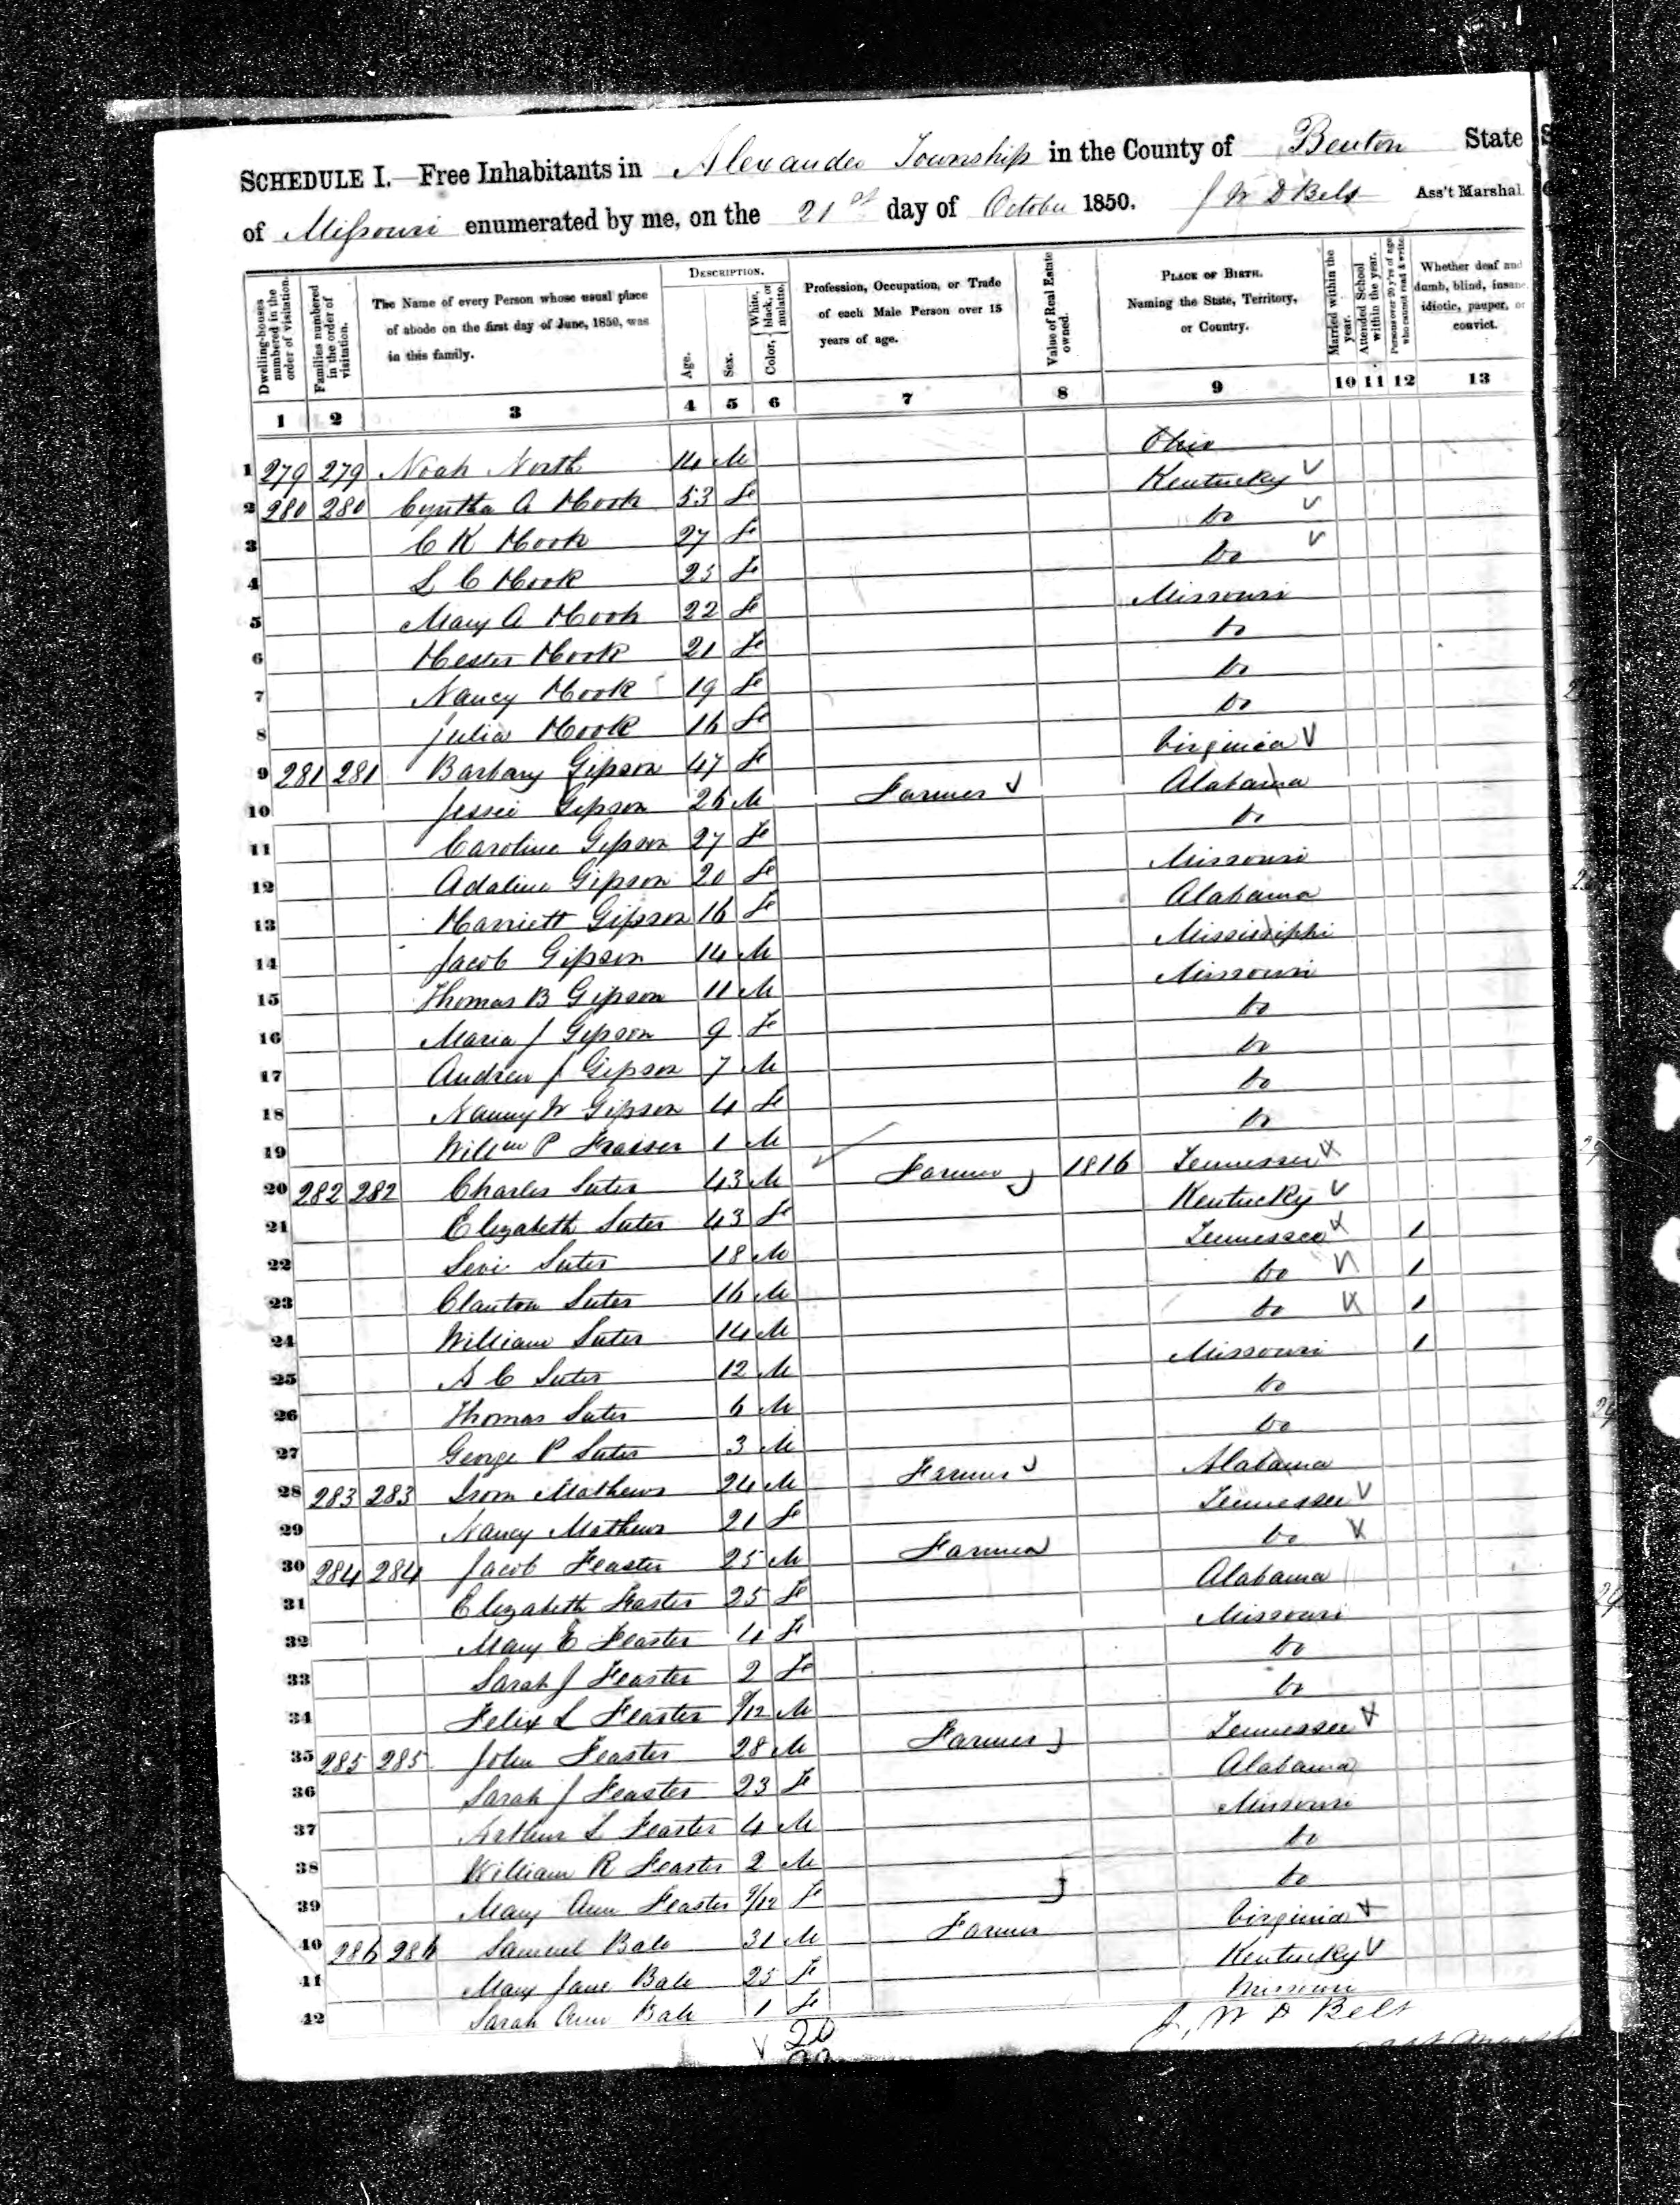 SCHEDULE I.—Free Inhabitants in Alexander Township in the County of Benton State
of Missouri enumerated by me, on the 21st day of October 1850. J W D Belt Ass't Marshal.
Dwelling-houses numbered in the order of visitation.
Families numbered in the order of visitation.
The Name of every Person whose usual place of abode on the first day of June, 1850, was in this family.
DESCRIPTION.
Age.
Sex.
Color, White, black, or mulatto.
Profession, Occupation, or Trade of each Male Person over 15 years of age.
Value of Real Estate owned.
PLACE OF BIRTH. Naming the State, Territory, or Country.
Married within the year.
Attended School within the year.
Persons over 20 y'rs of age who cannot read & write.
Whether deaf and dumb, blind, insane, idiotic, pauper, or convict.
1 2 3 4 5 6 7 8 9 10 11 12 13
1 279 279 Noah North 14 M Ohio
2 280 280 Cyntha A Hook 53 Fe Kentucky
3 C K Hook 27 Fe Do
4 L C Hook 25 Fe Do
5 Mary A Hook 22 Fe Missouri
6 Hester Hook 21 Fe Do
7 Nancy Hook 19 Fe Do
8 Julia Hook 16 Fe Do
9 281 281 Barbary Gipson 47 Fe Virginia
10 Jessee Gipson 26 M Farmer Alabama
11 Caroline Gipson 27 Fe Do
12 Adaline Gipson 20 Fe Missouri
13 Harriett Gipson 16 Fe Alabama
14 Jacob Gipson 14 M Mississiphi
15 Thomas B Gipson 11 M Missouri
16 Maria J Gipson 9 Fe Do
17 Andrew J Gipson 7 M Do
18 Nancy W Gipson 4 Fe Do
19 Willm P Fraiser 1 M Do
20 282 282 Charles Suter 43 M Farmer 1816 Tennessee
21 Elizabeth Suter 43 Fe Kentucky
22 Levi Suter 18 M Tennessee 1
23 Clanton Suter 16 M Do 1
24 William Suter 14 M Do 1
25 A C Suter 12 M Missouri 1
26 Thomas Suter 6 M Do
27 George P Suter 3 M Do
28 283 283 Isom Mathews 24 M Farmer Alabama
29 Nancy Mathews 21 Fe Tennessee
30 284 284 Jacob Feaster 25 M Farmer Do
31 Elizabeth Feaster 25 Fe Alabama
32 Mary E Feaster 4 Fe Missouri
33 Sarah J Feaster 2 Fe Do
34 Felix L Feaster /12 M Do
35 285 285 John Feaster 28 M Farmer Tennessee
36 Sarah J Feaster 23 Fe Alabama
37 Arthur L Feaster 4 M Missouri
38 William R Feaster 2 M Do
39 Mary Ann Feaster 9/12 Fe Do
40 286 286 Samuel Bale 31 M Farmer Virginia
41 Mary Jane Bale 25 Fe Kentucky
42 Sarah Ann Bale 1 Fe Missouri
20
J. W D Belt